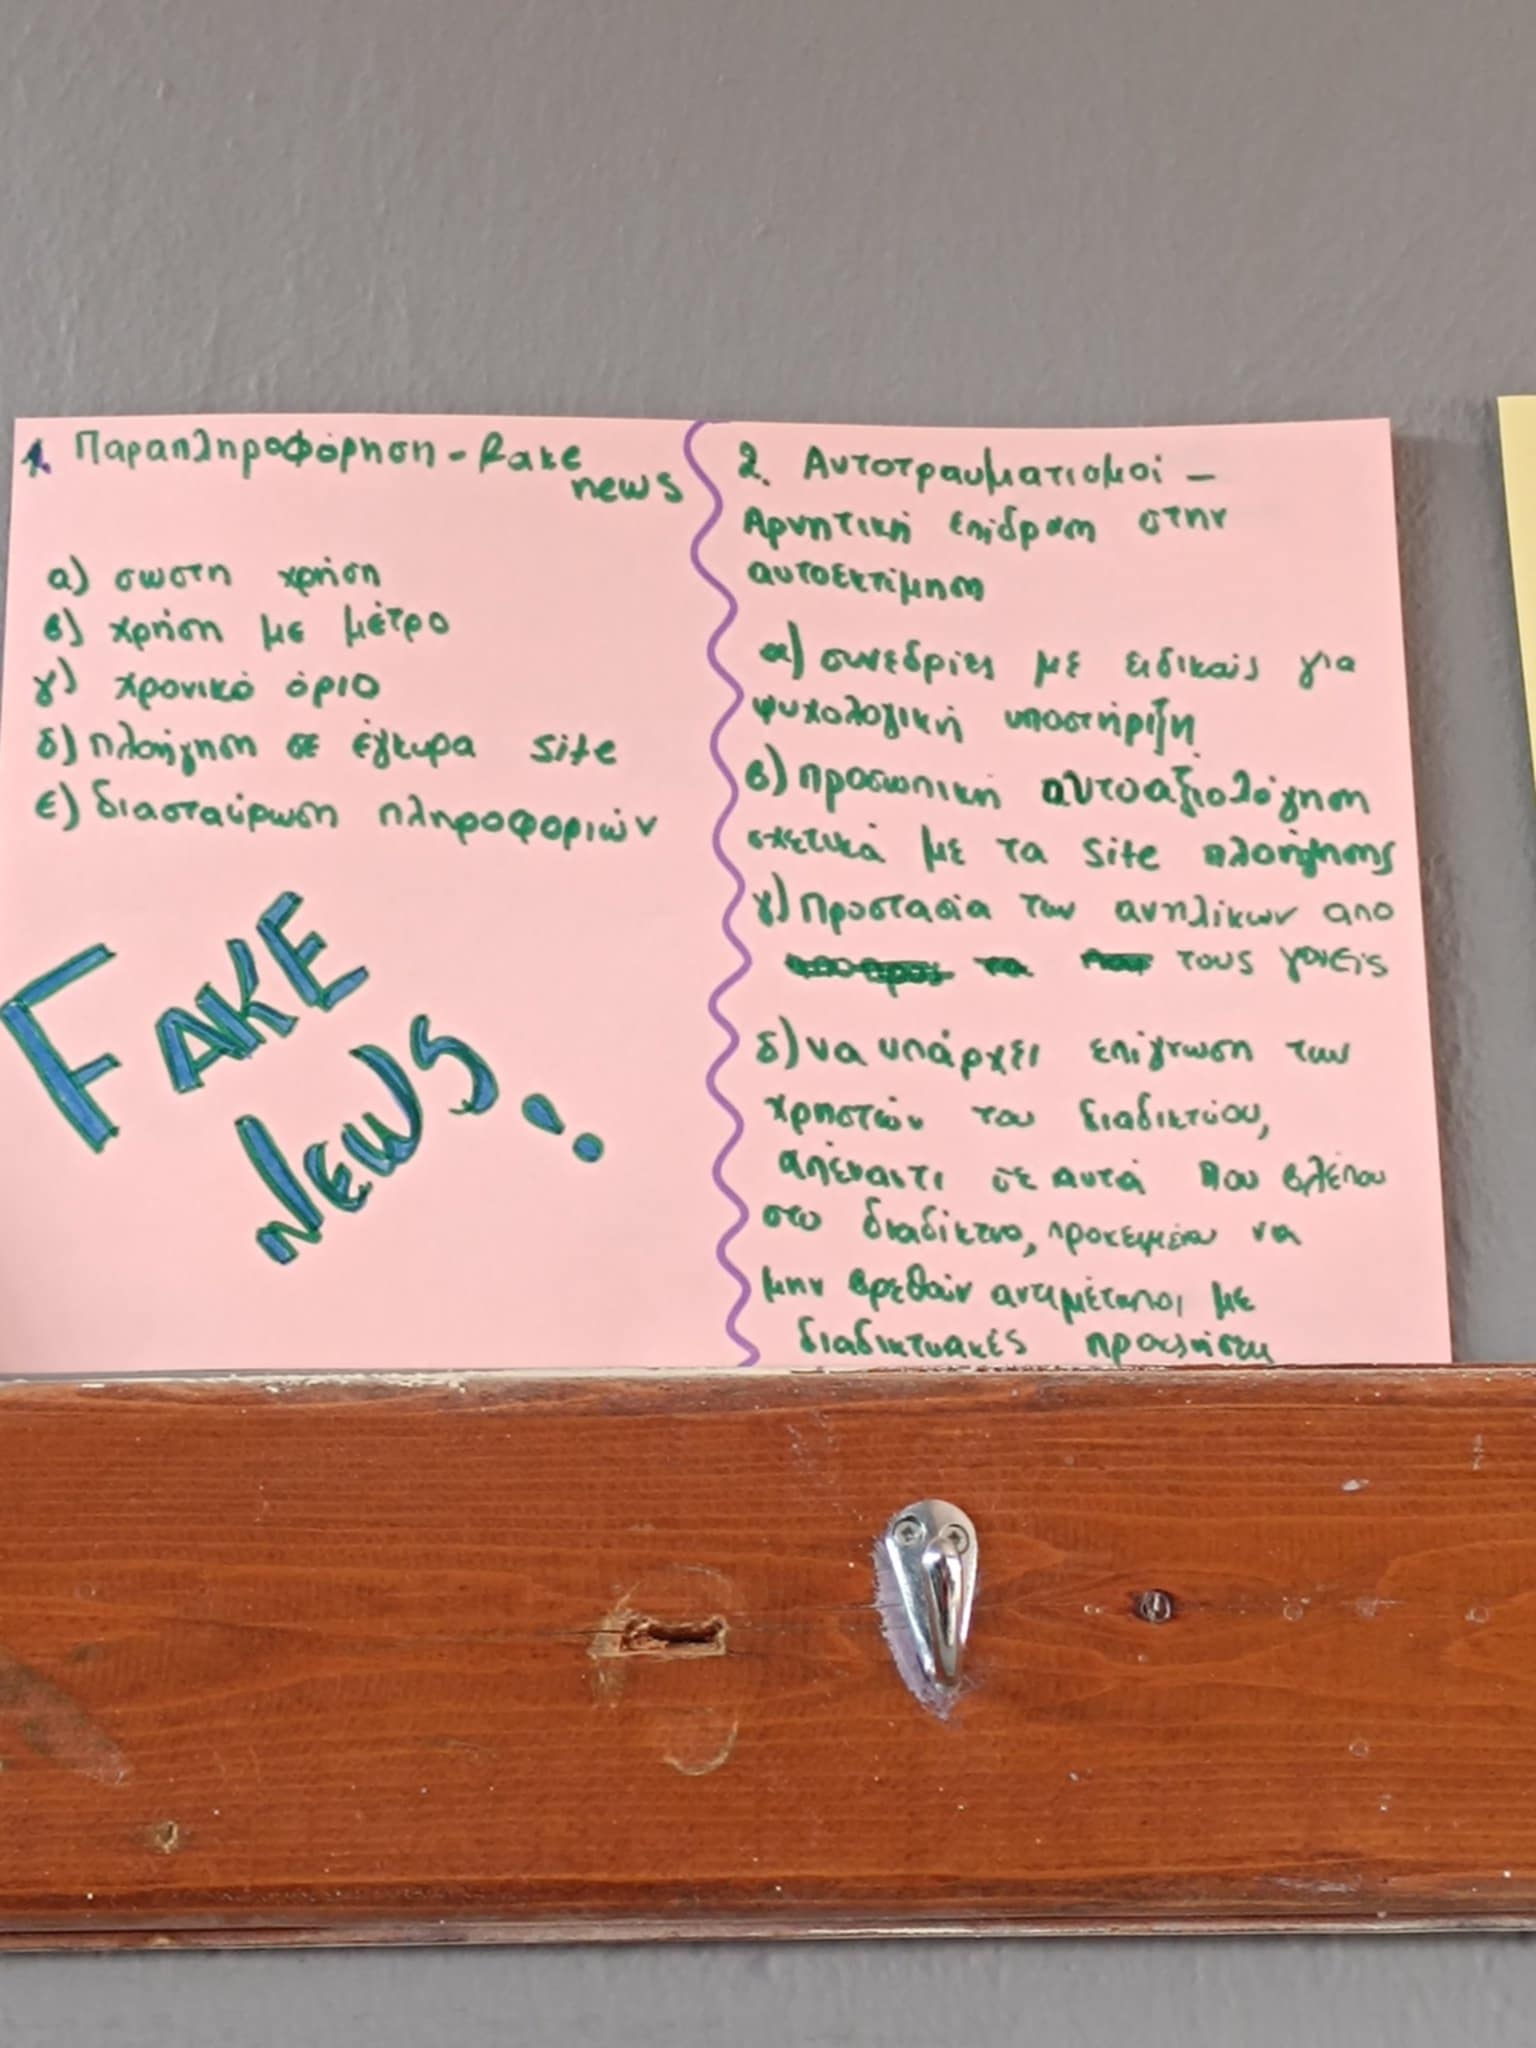 1. Παραπληροφόρηση - fake
news
α) σωστη χρήση
β) χρήση με μέτρο
γ) χρονικό όριο
δ) πλοήγηση σε έγκυρα site
ε) διασταύρωση πληροφοριών
FAKE
NEWS!
2. Αυτοτραυματισμοί -
Αρνητική επίδραση στην
αυτοεκτίμηση
α) συνεδρίες με ειδικούς για
ψυχολογική υποστήριξη
β) προσωπική αυτοαξιολόγηση
σχετικά με τα site πλοήγησης
γ) Προστασία των ανηλίκων απο
τους γονείς
δ) να υπάρχει επίγνωση των
χρηστών του διαδικτύου,
απέναντι σε αυτά που βλέπου
στο διαδίκτυο, προκειμένου να
μην βρεθούν αντιμέτωποι με
διαδικτυακές προκλήσεις